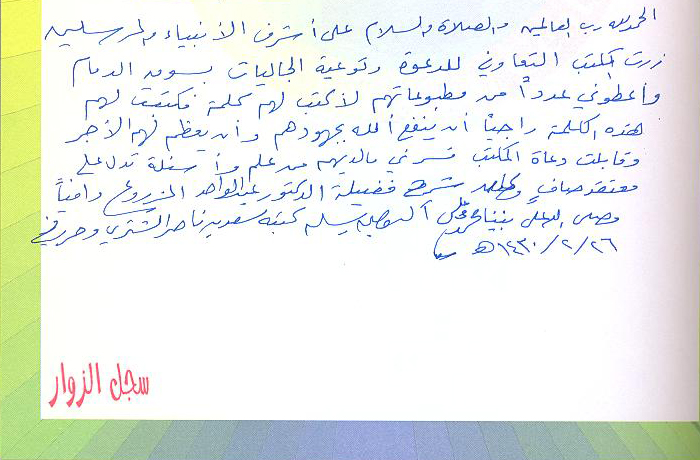 الحمد لله رب العالمين والصلاة والسلام على أشرف الأنبياء والمرسلين
زرت المكتب التعاوني للدعوة وتوعية الجاليات بسوق الدمام
وأعطوني عدداً من مطبوعاتهم لأكتب لهم كلمة فكتبت لهم
هذه الكلمة راجياً أن ينفع الله بجهودهم وأن يعظم لهم الأجر
وقابلت دعاة المكتب فسرني ما لديهم من علم وأسئلة تدل على
معتقد صاف فضيلة الدكتور عبدالواحد المزروع
وصلى الله على نبينا محمد وعلى آله وصحبه وسلم كتبه سعد بن ناصر الشثري وحرر في
٢٦/٢/١٤٣٠هـ
سجل الزوار